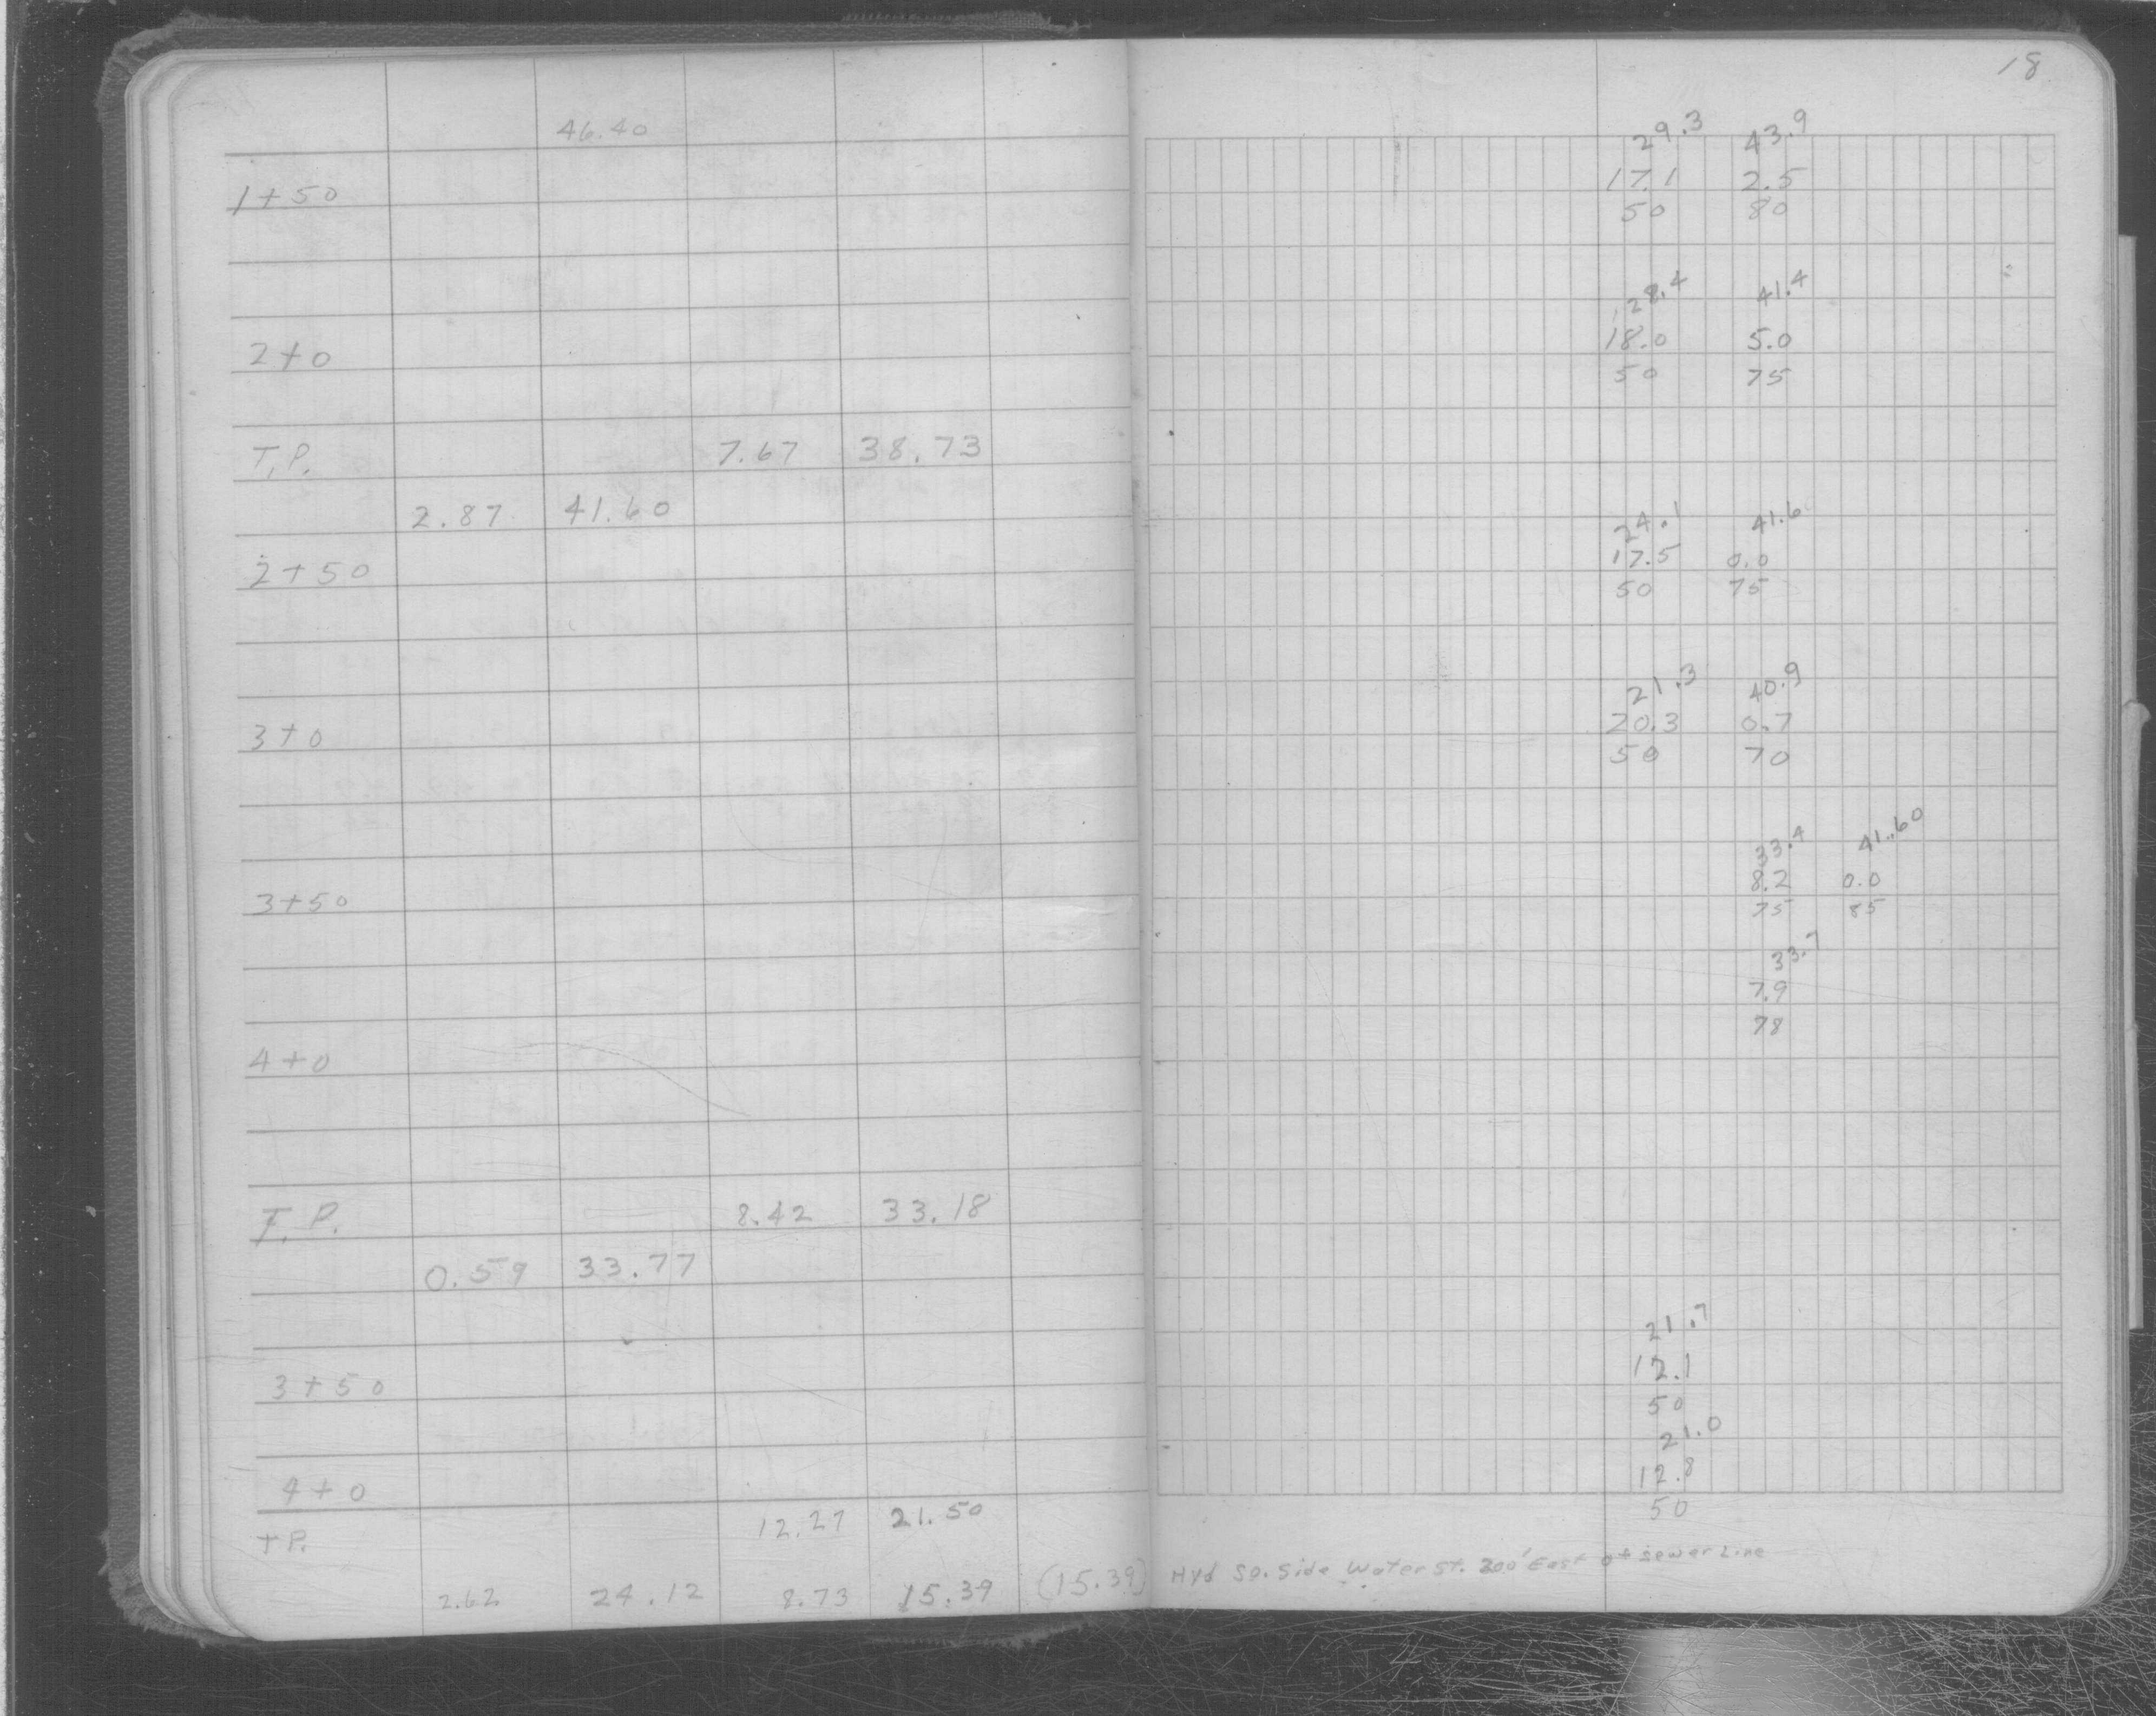 18
46.40
29.3 43.9
1+50 17.1 2.5
50 80
28.4 41.4
2+0 18.0 5.0
50 75
T.P. 7.67 38.73
2.87 41.60
24.1 41.6
2+50 17.5 0.0
50 75
21.3 40.9
3+0 20.3 0.7
50 70
33.4 41.60
3+50 8.2 0.0
75 85
33.7
7.9
4+0 78
T.P. 8.42 33.18
0.59 33.77
21.7
3+50 12.1
50
21.0
4+0 12.8
T.P. 12.27 21.50 50
2.62 24.12 8.73 15.39 (15.39) Hyd So. Side Water St. 300' East of sewer Line